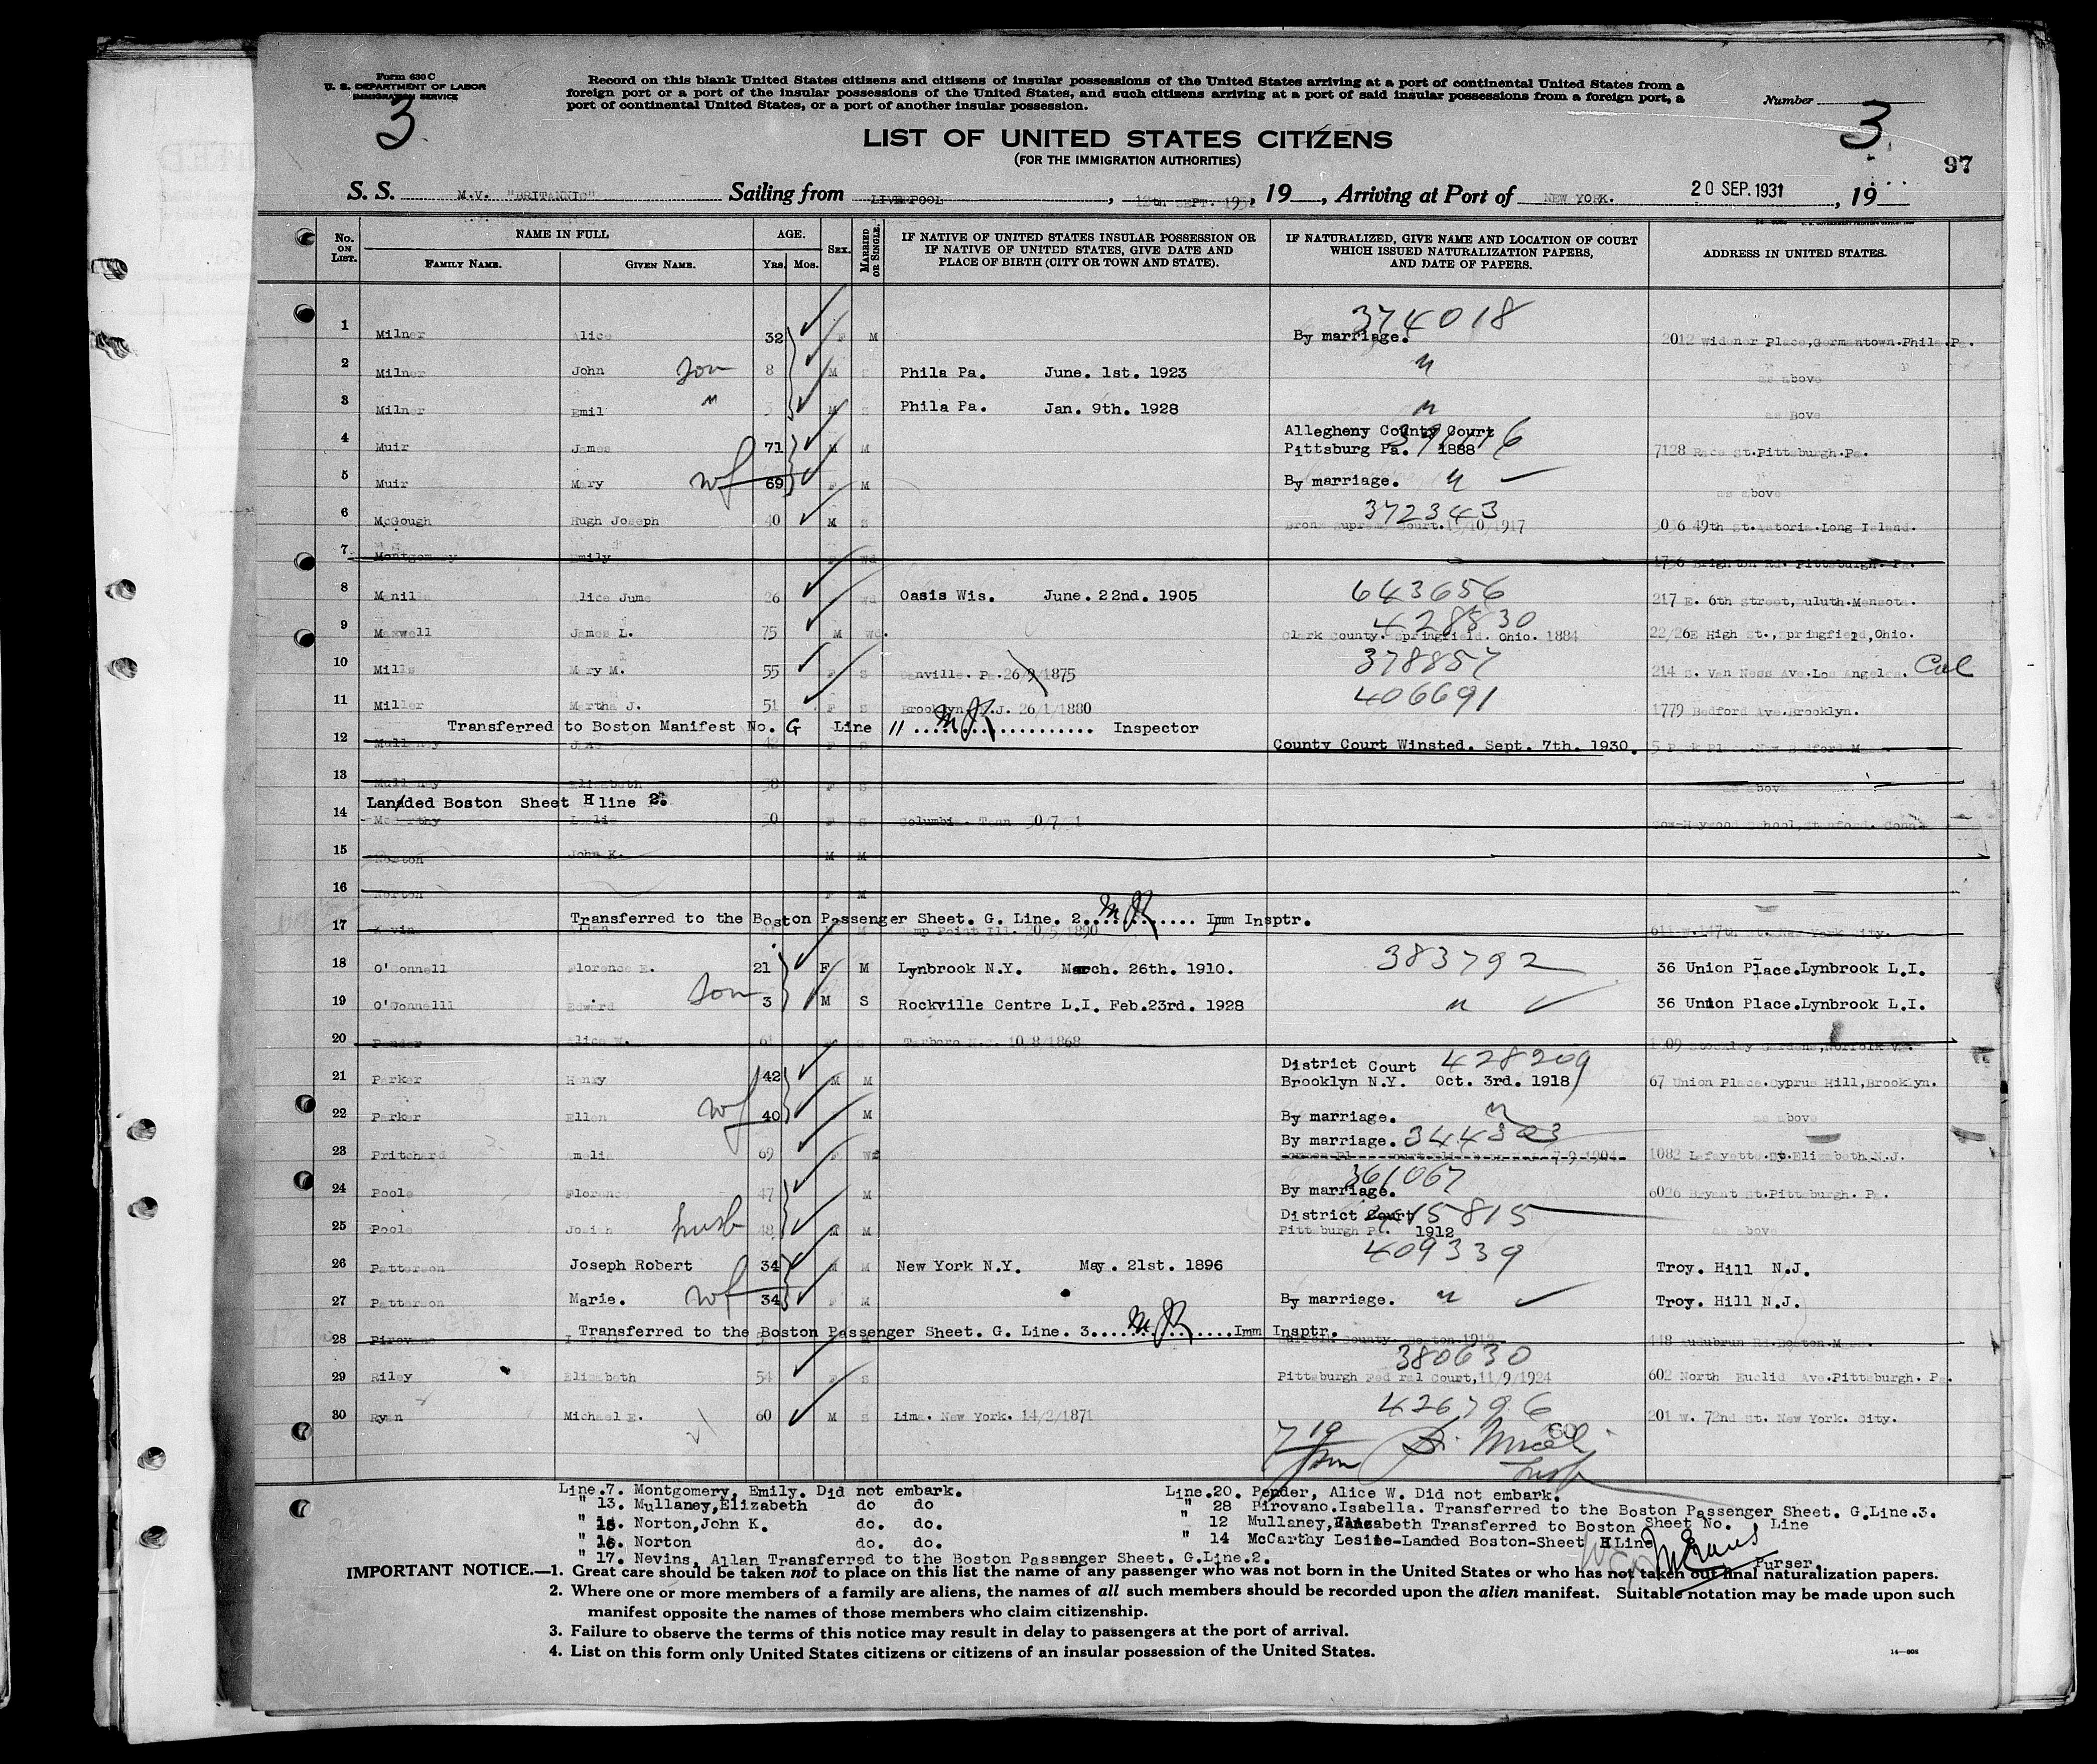 Form 630 C
U. S. DEPARTMENT OF LABOR
IMMIGRATION SERVICE
3
Record on this blank United States citizens and citizens of insular possessions of the United States arriving at a port of continental United States from a
foreign port or a port of the insular possessions of the United States, and such citizens arriving at a port of said insular possessions from a foreign port, a
port of continental United States, or a port of another insular possession.
Number
3
LIST OF UNITED STATES CITIZENS
(FOR THE IMMIGRATION AUTHORITIES)
97
S. S. M.V. "BRITANNIC" Sailing from LIVERPOOL, 12th SEPT. 1931, 19__, Arriving at Port of NEW YORK. 20 SEP. 1931, 19
No. ON LIST. NAME IN FULL FAMILY NAME. GIVEN NAME. AGE. Yrs. Mos. SEX. MARRIED OR SINGLE. IF NATIVE OF UNITED STATES INSULAR POSSESSION OR IF NATIVE OF UNITED STATES, GIVE DATE AND PLACE OF BIRTH (CITY OR TOWN AND STATE). IF NATURALIZED, GIVE NAME AND LOCATION OF COURT WHICH ISSUED NATURALIZATION PAPERS, AND DATE OF PAPERS. ADDRESS IN UNITED STATES.
374018
1 Milner Alice 32 F M By marriage. 2012 Widener Place,Germantown.Phila.Pa.
2 Milner John son 8 M S Phila Pa. June. 1st. 1923 " as above
3 Milner Emil " M S Phila Pa. Jan. 9th. 1928 " as Bove
Allegheny County Court
4 Muir James 71 M M Pittsburg Pa. 1888 7128 Race St.Pittsburgh.Pa.
5 Muir Mary wf 69 F M By marriage. " as above
372343
6 McGough Hugh Joseph 40 M S Bronx Supreme Court. 1917 49th St.Astoria.Long Island.
7 Montgomery Emily F Wd Brighton Rd. Pittsburgh. Pa.
643656
8 Alice June 26 Wd Oasis Wis. June. 22nd. 1905 217 E. 6th Street,
428830
9 Maxwell James L. 75 M Wd. Clark County. Springfield. Ohio. 1884 22/26E High St.,Springfield,Ohio.
378857
10 Mills Mary M. 55 F S Danville. Pa.26/9/1875 214 S. Van Ness Ave.Los Angeles. Cal
406691
11 Miller Martha J. 51 F S Brooklyn. 26/1/1880 1779 Bedford Ave.Brooklyn.
Transferred to Boston Manifest No. G Line 11 ................... Inspector
12 Mullaney 42 F S County Court Winsted. Sept. 7th. 1930. 5 Park Place.New Bedford
13 Mullaney Elizabeth 38 F S as above
Landed Boston Sheet H line 2.
14 McCarthy Leslie 30 F S Columbia. Tenn Low-Haywood School,Stamford. Conn
15 Norton John K. M M
16 Norton F M
Transferred to the Boston Passenger Sheet. G. Line. 2............. Imm Insptr.
17 Nevins Allan M Camp Point Ill. 20/5/1890 147th St.New York City.
383792
18 O'Connell Florence E. 21 F M Lynbrook N.Y. March. 26th. 1910. 36 Union Place.Lynbrook L.I.
19 O'Connelll Edward son 3 M S Rockville Centre L.I. Feb.23rd. 1928 " 36 Union Place.Lynbrook L.I.
20 Pender Alice W. Tarboro N.C. 10/8/1868 Stockley Gardens,Norfolk
District Court 428209
21 Parker Henry 42 M M Brooklyn N.Y. Oct. 3rd. 1918 67 Union Place.Cyprus Hill,Brooklyn.
22 Parker Ellen wf 40 M By marriage. " as above
By marriage. 344303
23 Pritchard Amelia 69 F Wd 1082 Lafayette.St.Elizabeth.N.J.
361067
24 Poole Florence 47 M By marriage. 6026 Bryant St.Pittsburgh. Pa.
District Court 415815
25 Poole Josiah husb 48 M M Pittsburgh Pa. 1912 as above
409339
26 Patterson Joseph Robert 34 M M New York N.Y. May. 21st. 1896 Troy. Hill N.J.
27 Patterson Marie. wf 34 F M By marriage. " Troy. Hill N.J.
Transferred to the Boston Passenger Sheet. G. Line. 3................Imm Insptr.
28 Pirovano County Boston 1912 448 Audubrun Rd.Boston
380630
29 Riley Elizabeth 54 F S Pittsburgh Federal Court,11/9/1924 602 North Euclid Ave.Pittsburgh. Pa.
426796
30 Ryan Michael E. 60 M S Lima. New York. 14/2/1871 201 W. 72nd St. New York. City.
Line.7. Montgomery, Emily. Did not embark.
" 13. Mullaney,Elizabeth do do
" 15. Norton,John K. do. do.
" 16. Norton do. do.
" 17. Nevins, Allan Transferred to the Boston Passenger Sheet. G.Line.2.
Line.20. Pender, Alice W. Did not embark.
" 28 Pirovano.Isabella. Transferred to the Boston Passenger Sheet. G.Line.3.
" 12 Mullaney, Transferred to Boston Sheet No. , Line
" 14 McCarthy Leslie-Landed Boston-Sheet H Line
Purser.
IMPORTANT NOTICE.—1. Great care should be taken not to place on this list the name of any passenger who was not born in the United States or who has not taken out final naturalization papers.
2. Where one or more members of a family are aliens, the names of all such members should be recorded upon the alien manifest. Suitable notation may be made upon such
manifest opposite the names of those members who claim citizenship.
3. Failure to observe the terms of this notice may result in delay to passengers at the port of arrival.
4. List on this form only United States citizens or citizens of an insular possession of the United States.
14—808